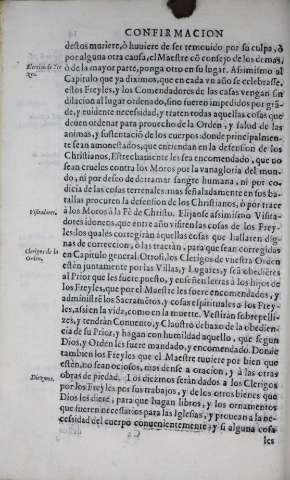 CONFIRMACION
destos muriere, ò huuiere de ser remouido por su culpa, ò
por alguna otra causa, el Maestre cõ consejo de los demas,
ò de la mayor parte, ponga otro en su lugar. Assimismo al
Capitulo que ya diximos, que en cada vn año se celebrasse,
estos Freyles, y los Comendadores de las casas vengan sin
dilacion al lugar ordenado, sino fueren impedidos por grã-
de, y euidente necessidad, y traten todas aquellas cosas que
deuen ordenar para prouecho de la Orden, y salud de las
animas, y sustentaciõ de los cuerpos: donde principalmen-
te sean amonestados, que entiendan en la defension de los
Christianos, Estrechamente les sea encomendado, que no
sean crueles contra los Moros por la vanagloria del mun-
do, ni por desseo de derramar sangre humana, ni por co-
dicia de las cosas terrenales: mas señaladamente en sus ba-
tallas procuren la defension de los Christianos, ò por traer
à los Moros à la Fè de Christo. Elijanse assimismo Visita-
dores idoneos, que entre año visiten las casas de los Frey-
les: los quales corregiràn aquellas cosas que hallaren dig-
nas de correccion, ò las traeràn, para que sean corregidas
en Capitulo general. Otrosi, los Clerigos de vuestra Orden
estèn juntamente por las Villas, y Lugares, y seã obediẽtes
al Prior que les fuere puesto, y enseñen letras à los hijos de
los Freyles, que por el Maestre les fuere encomendados, y
administrẽ los Sacramẽtos, y cosas espirituales à los Frey-
les, assi en la vida, como en la muerte. Vestiràn sobrepelli-
zes, y tendràn Conuento, y Claustro debaxo de la obedien-
cia de su Prior, y hagan con humildad aquello, que segun
Dios, y Orden les fuere mandado, y encomendado. Donde
tambien los Freyles que el Maestre tuuiere por bien que
estèn, no sean ociosos, mas dense à oracion, y à las otras
obras de piedad. Los diezmos seràn dados à los Clerigos
por los Freyles por sus trabajos, y de los otros bienes que
Dios les diere, para que hagan libros, y los ornamentos
que fueren necessarios para las Iglesias, y prouean à la ne-
cessidad del cuerpo conuenientemente, y si alguna cosa
les
Visitadores.
Clerigos de la
Orden.
Diezmos.